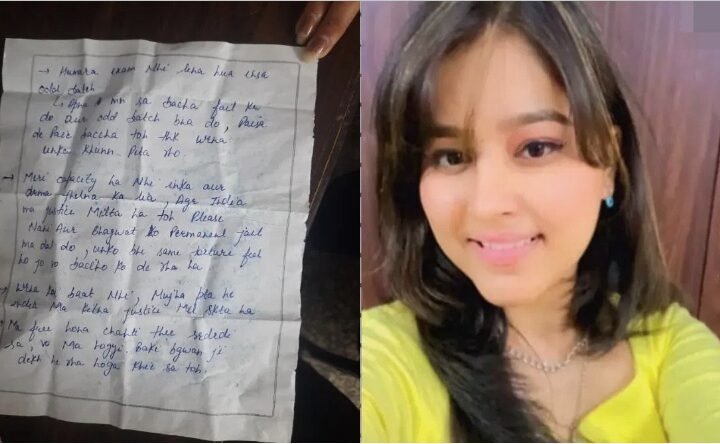 → Humara exam Nhi lena hua ensa
odd batch
↳ Apna mn sa bacha fail ka
do aur odd batch bna do, Paisa
de Paer baccha toh thk wrna
unka khunn Peta rho.
→ Meri capacity ha Nhi inka aur
drma jhelna ka lia, Agr India
ma justice Melta ha toh Please
Mahi Aur Bhagwat ko Permanent jail
ma dal do, unko bhi same torture feel
ho jo vo baccho ko de rha ha
→ Wrna koi baat Nhi, Mujha pta he
India Ma ketna justice Mel skta ha
Ma free hona chahti thee
sa, vo Ma hogyi. Baki bgwan ji
dekh he rha hoga kher sa toh.